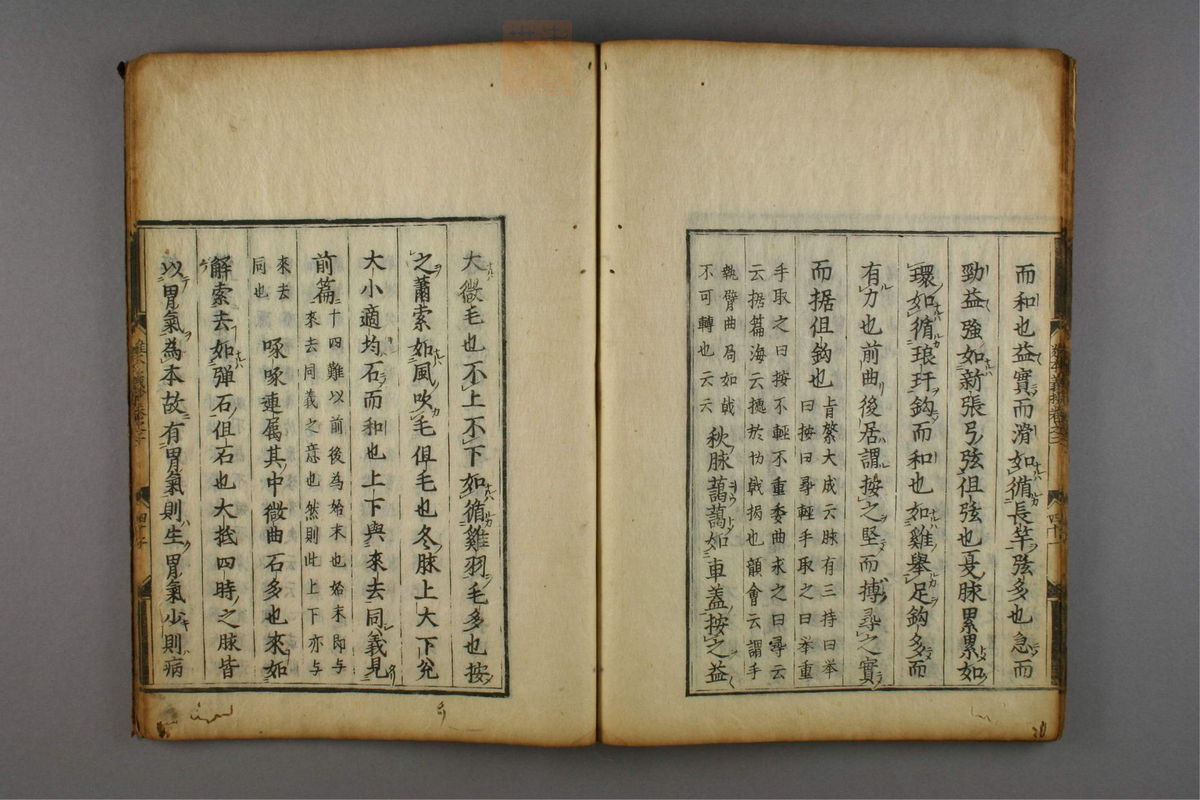 而和也益實而滑如循長竿弦多也急而
勁益強如新張弓弦但弦也夏脉累累如
環如循琅玕鈎而和也如雞舉足鈎多而
有力也前曲後居謂按之堅而搏尋之實
而据但鈎也
大成云脉有三持曰举
曰按曰尋輕手取之曰举重
手取之曰按不輕不重委曲求之曰尋云
云据篇海云
也韻會云謂手
執臂曲局如戟
不可轉也云云
秋脉藹藹如車蓋按之益
大微毛也不上不下如循雞羽毛多也按
之蕭索如風吹毛但毛也冬脉上大下兊
大小適均石而和也上下與來去同義見
前篇
十四難以前後為始末也始末即与
來去同義之意也然則此上下亦与
來去
同也
啄啄連属其中微曲石多也來如
解索去如彈石但石也大抵四時之脉皆
以胃氣為本故有胃氣則生胃氣少則病